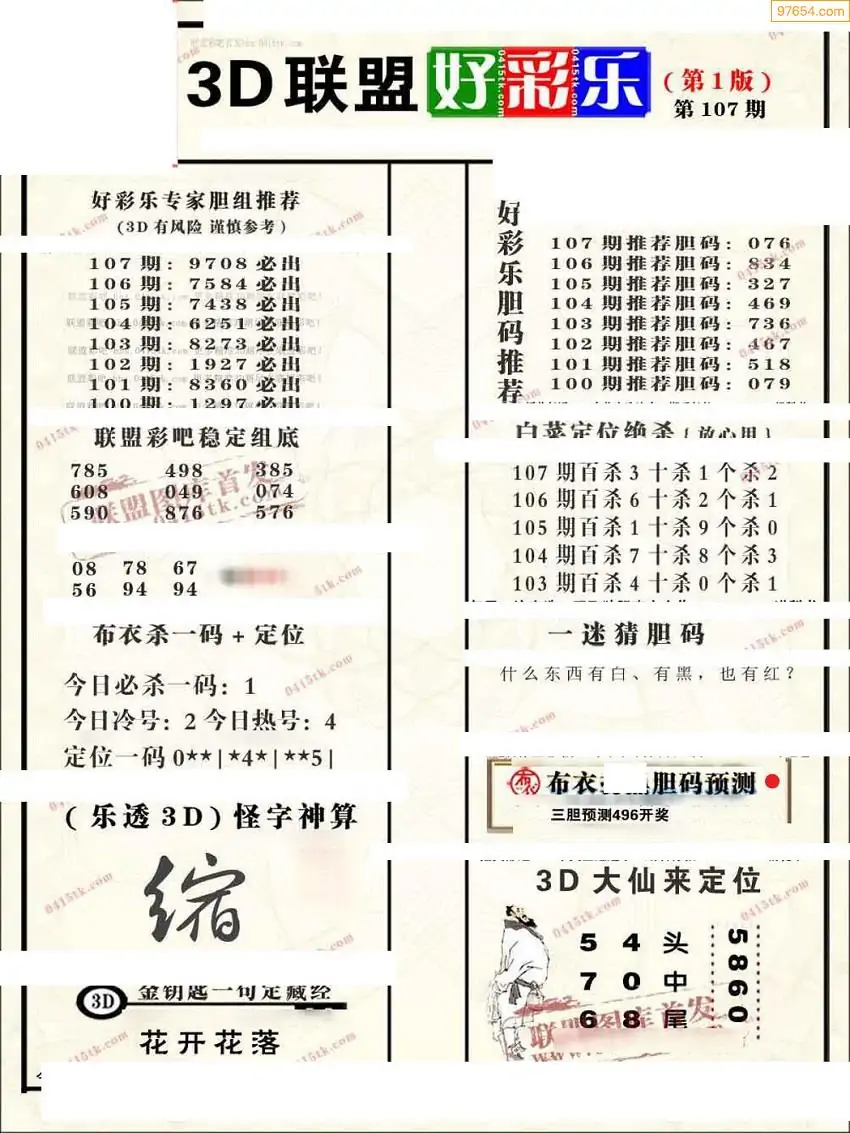 97654.com
3D联盟好彩乐
0415tk.com
0415tk.com
(第1版)
第107期
好彩乐专家胆组推荐
(3D有风险 谨慎参考)
107期：9708必出
106期：7584必出
105期：7438必出
104期：6251必出
103期：8273必出
102期：1927必出
101期：8360必出
100期：1297必出
联盟彩吧稳定组底
785 498 385
608 049 074
590 876 576
08 78 67
56 94 94
布衣杀一码+定位
今日必杀一码：1
今日冷号：2 今日热号：4
定位一码0**|*4*|**5|
(乐透3D)怪字神算
缩
3D
金钥匙一句定藏经
花开花落
好彩乐胆码推荐
107期推荐胆码：076
106期推荐胆码：834
105期推荐胆码：327
104期推荐胆码：469
103期推荐胆码：736
102期推荐胆码：467
101期推荐胆码：518
100期推荐胆码：079
白菜定位绝杀{放心用}
107期百杀3十杀1个杀2
106期百杀6十杀2个杀1
105期百杀1十杀9个杀0
104期百杀7十杀8个杀3
103期百杀4十杀0个杀1
一迷猜胆码
什么东西有白、有黑，也有红？
布衣
胆码预测
三胆预测496开奖
3D大仙来定位
5 4 头
7 0 中
6 8 尾
5860
联盟图库首发
0415tk.com